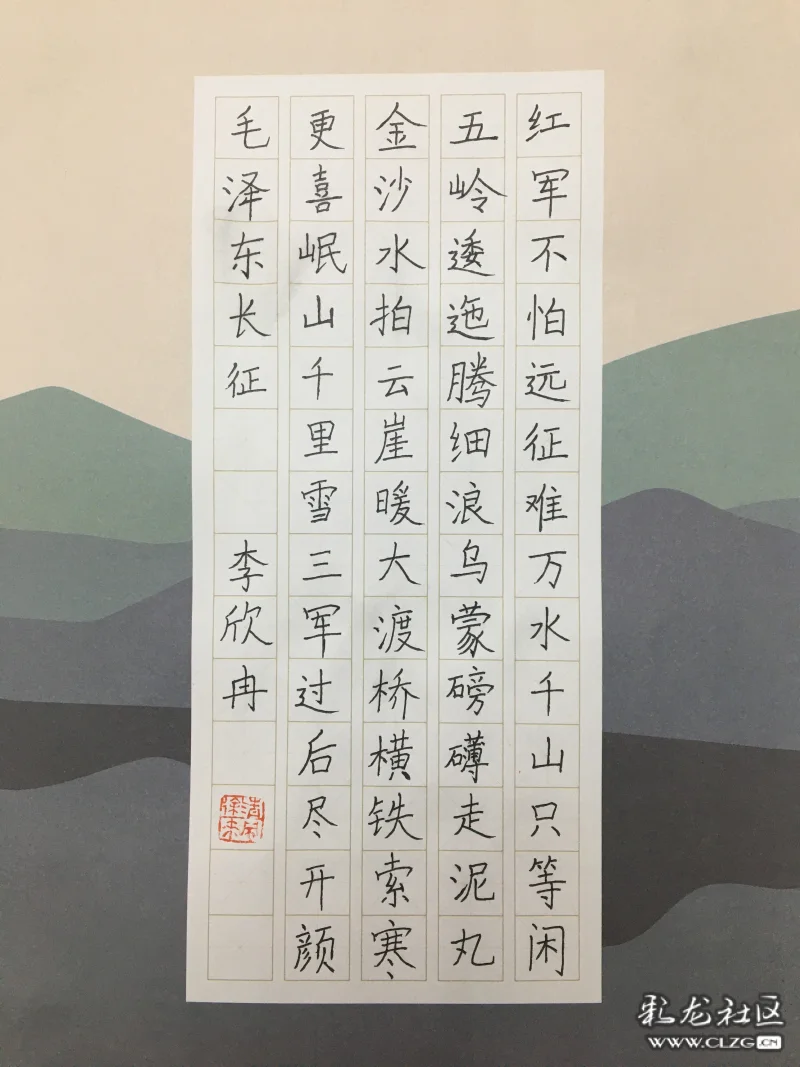 红军不怕远征难万水千山只等闲
五岭逶迤腾细浪乌蒙磅礴走泥丸
金沙水拍云崖暖大渡桥横铁索寒
更喜岷山千里雪三军过后尽开颜
毛泽东长征 李欣冉
清风徐来
彩龙社区
WWW.CLZG.CN